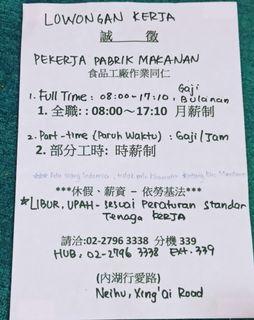 LOWONGAN KERJA
誠 徵
PEKERJA PABRIK MAKANAN
食品工廠作業同仁
1. Full Time : 08:00~17:10, Gaji Bulanan
1. 全職: : 08:00~17:10 月薪制
2. Part-time (Paruh Waktu) : Gaji/Jam
2. 部分工時: 時薪制
***休假、薪資 – 依勞基法***
*LIBUR, UPAH - Sesuai Peraturan Standar
Tenaga KERJA
請洽:02-2796 3338 分機 339
HUB : 02-2796 3338 EXT. 339
(內湖行愛路)
Neihu, Xing'Qi Road